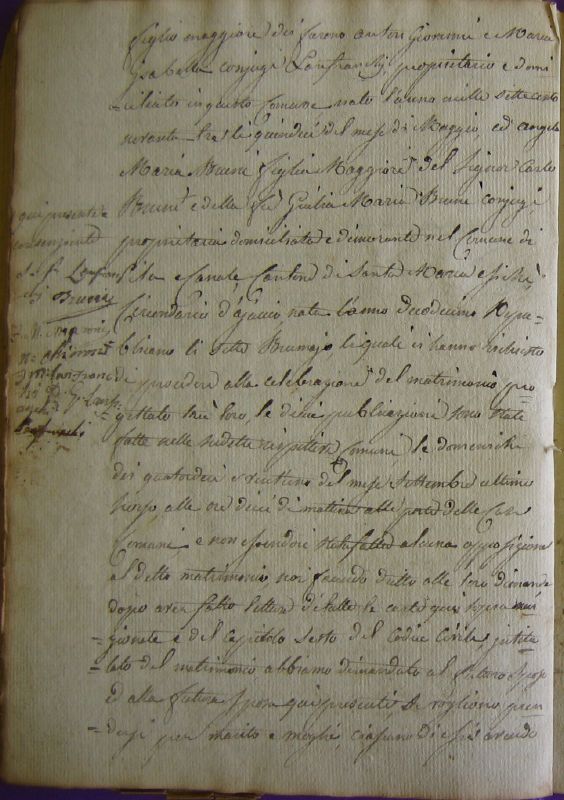 figlio maggiore dei furono autori Giovanni e Maria
Isabella conjugi Lanfranchi, proprietario e domi
=ciliato in questo Comune nato l'anno mille settecento
novanta tre li quindici del mese di Maggio, ed Angela
Maria Bruni figlia Maggiore del Signor Carlo
Bruni e della fù Giulia Maria Bruni conjugi
proprietaria domiciliata e dimorante nel Comune di
Pila e Canale Cantone di Santa Maria e Sichè,
Circondario d'Ajaccio nata l'anno duodecimo Repu=
=blicano li sette Brumajo li quali ci hanno richiesto
di procedere alla celebrazione del matrimonio pro
=gettato trà loro, le di cui pubblicazioni sono state
fatte nelle sudette rispettive Comuni le domeniche
dei quatordici e ventuno del mese Settembre ultimo
scorso alle ore dieci di matina alle porte delle Case
Comuni e non essendoci stata fatta alcuna opposizione
al detto matrimonio noi facendo dritto alle loro dimande
dopo aver fatto lettura di tutte le carte qui sopra men
=zionate e del capitolo sesto del Codice Civile, intito
=lato del matrimonio abbiamo dimandato al futuro sposo
ed alla futura sposa qui presenti se vogliono pren
=dersi per marito e moglie, ciascuno di essi avendo
qui presenti e
consenzienti
Lanfran
chi Bruni
Lanfranchi